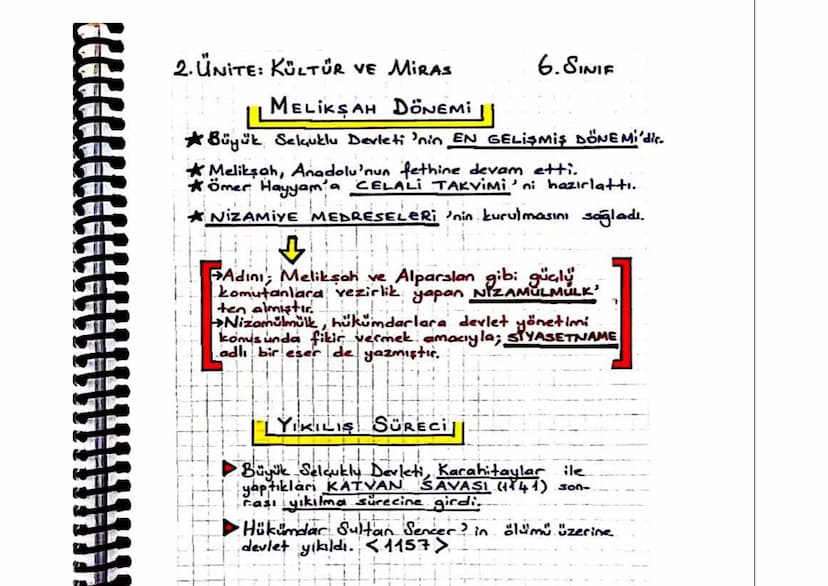 2. ÜNİTE: KÜLTÜR VE MİRAS 6. SINIF
MELİKŞAH DÖNEMİ
★ Büyük Selçuklu Devleti'nin EN GELİŞMİŞ DÖNEMİ'dir.
★ Melikşah, Anadolu'nun fethine devam etti.
★ Ömer Hayyam'a CELALİ TAKVİMİ'ni hazırlattı.
★ NİZAMİYE MEDRESELERİ'nin kurulmasını sağladı.
→Adını; Melikşah ve Alparslan gibi güçlü
komutanlara vezirlik yapan NİZAMÜLMÜLK'
ten almıştır.
→Nizamülmülk, hükümdarlara devlet yönetimi
konusunda fikir vermek amacıyla; SİYASETNAME
adlı bir eser de yazmıştır.
YIKILIŞ SÜRECİ
Büyük Selçuklu Devleti, Karahitaylar ile
yaptıkları KATVAN SAVAŞI (1141) son-
rası yıkılma sürecine girdi.
Hükümdar Sultan Sencer'in ölümü üzerine
devlet yıkıldı. <1157>